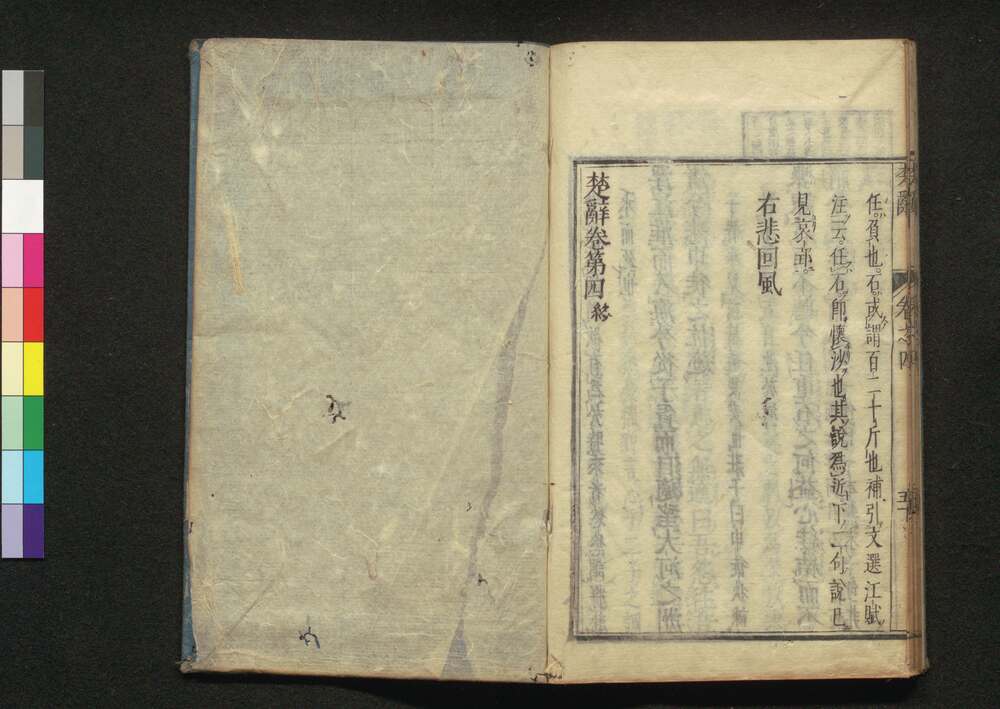 楚辭
卷之四
五十
任。負也。石或謂百二十斤也補引文選江賦
注云。任石。即懷沙也其說爲近下二句說已
見哀郢
右悲回風
楚辭卷第四終